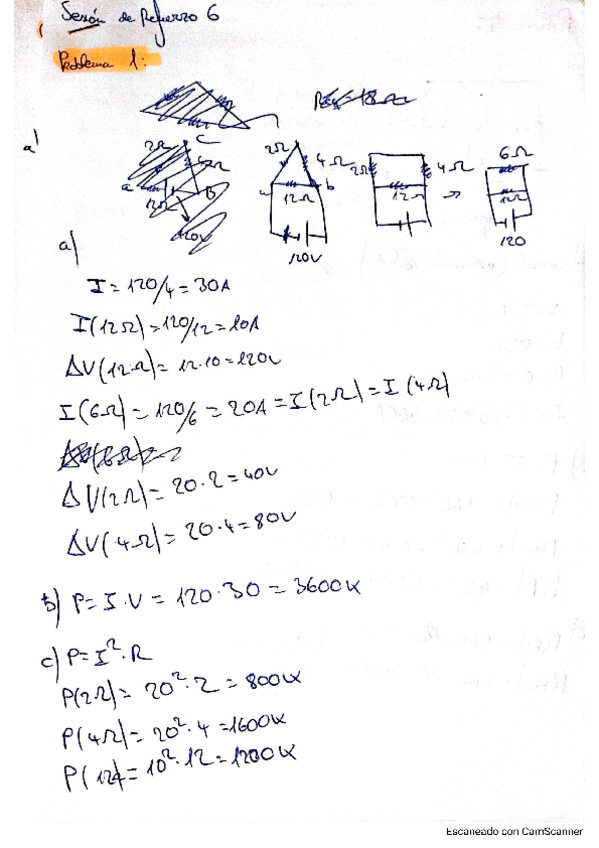 Sesión de Refuerzo 6
Problema 1:
a)
2Ω 4Ω 12Ω a b 120V
2Ω 4Ω 12Ω
6Ω 12Ω 120
a)
I = 120/4 = 30A
I(12Ω) = 120/12 = 10A
ΔV(12Ω) = 12·10 = 120V
I(6Ω) = 120/6 = 20A = I(2Ω) = I(4Ω)
ΔV(2Ω) = 20·2 = 40V
ΔV(4Ω) = 20·4 = 80V
b) P = I·V = 120·30 = 3600W
c) P = I²·R
P(2Ω) = 20²·2 = 800W
P(4Ω) = 20²·4 = 1600W
P(12) = 10²·12 = 1200W
Escaneado con CamScanner